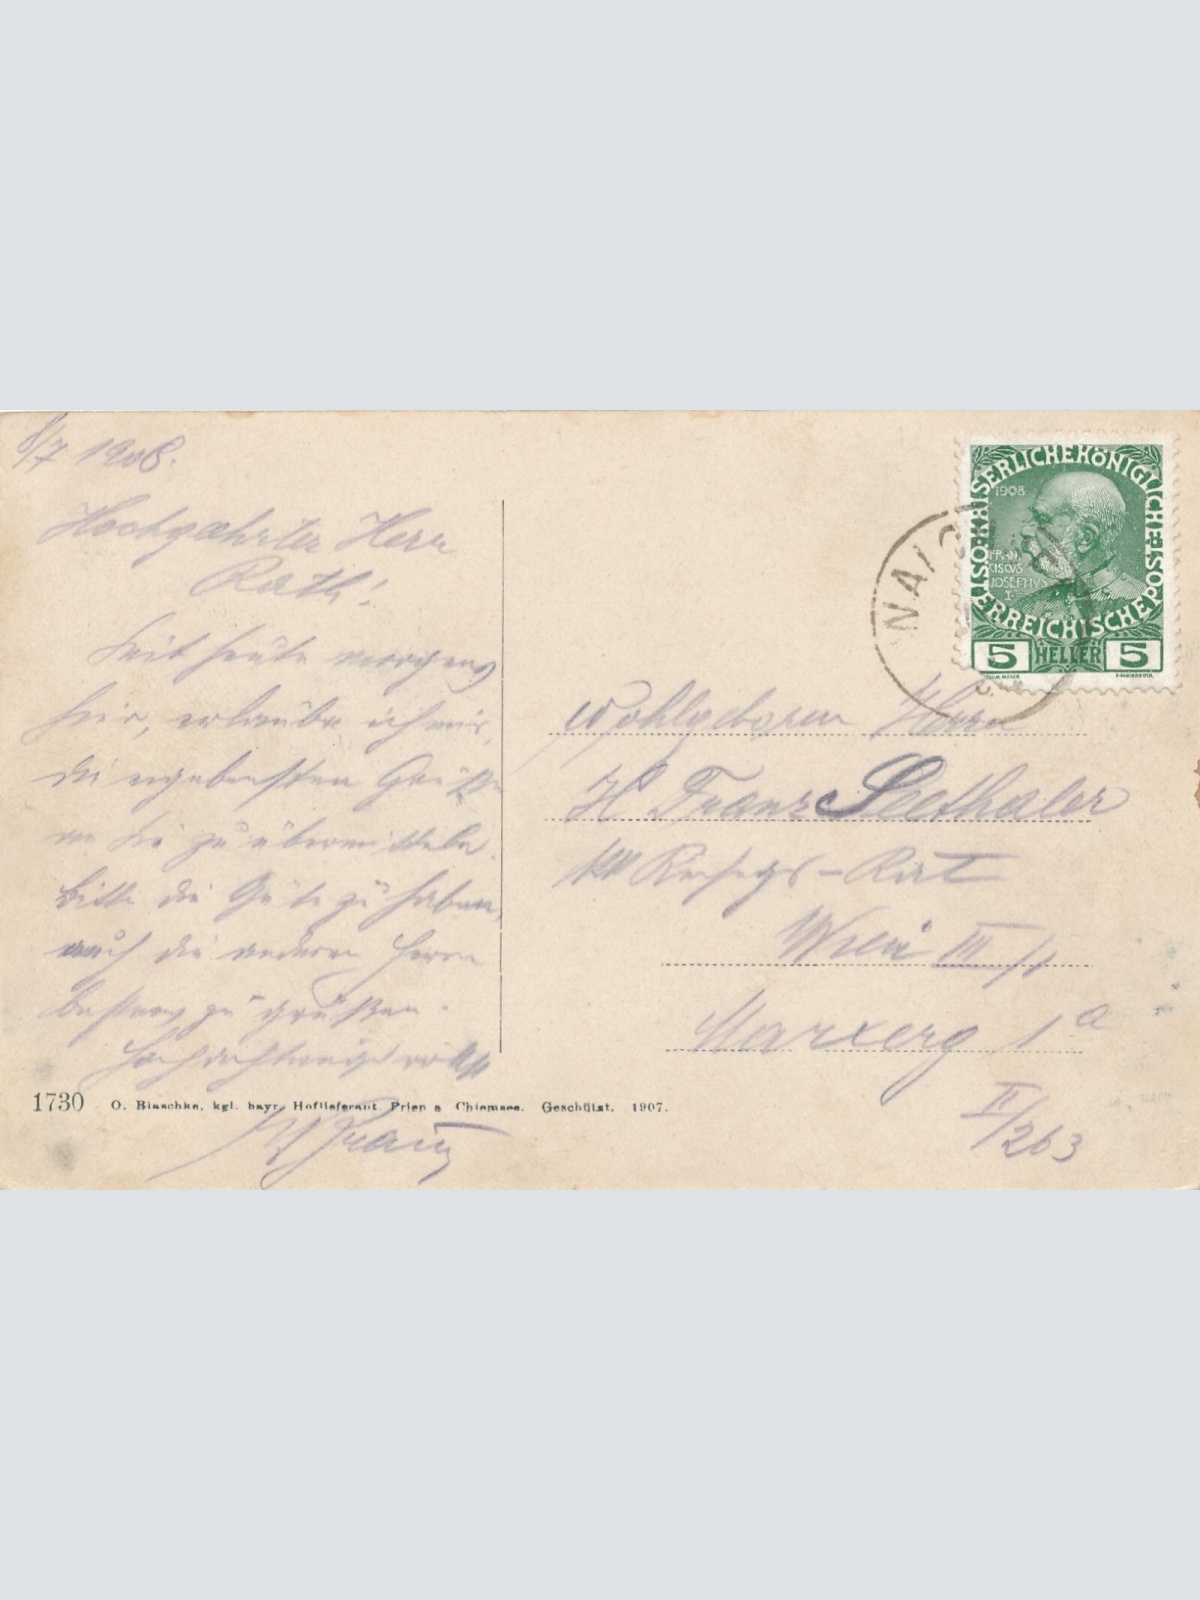 8/7 1908.
Hochgeehrter Herr
Rath!
Seit heute morgens
hier, erlaube ich mir,
die ergebensten Grüße
an Sie zu übermitteln.
Bitte die Güte zu haben,
auch die anderen Herrn
bestens zu grüßen.
Hochachtungsvollst
1730 O. Blaschke, kgl. bayr. Hoflieferant Prien a Chiemsee. Geschützt. 1907.
KAISERLICHEKÖNIGLICHE
ÖSTERREICHISCHEPOST
1908
FRAN
CISCVS
IOSEPHVS
I
5 HELLER 5
Wohlgeboren Herrn
H Franz Seethaler
kk Rat
Wien III/1
Marxerg 1a
II/263